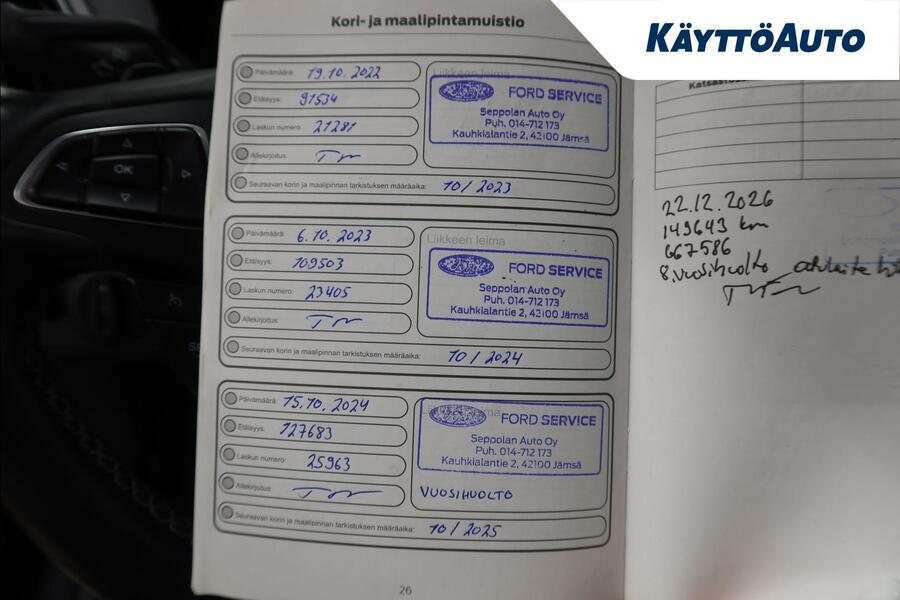 KÄYTTÖAUTO
Kori- ja maalipintamuistio
Päivämäärä: 19.10.2022
Etäisyys: 91534
Laskun numero: 21281
Allekirjoitus:
Liikkeen leima
FORD SERVICE
Seppolan Auto Oy
Puh. 014-712 173
Kauhkialantie 2, 42100 Jämsä
Seuraavan korin ja maalipinnan tarkistuksen määräaika: 10/2023
Päivämäärä: 6.10.2023
Etäisyys: 109503
Laskun numero: 23405
Allekirjoitus:
Liikkeen leima
FORD SERVICE
Seppolan Auto Oy
Puh. 014-712 173
Kauhkialantie 2, 42100 Jämsä
Seuraavan korin ja maalipinnan tarkistuksen määräaika: 10/2024
Päivämäärä: 15.10.2024
Etäisyys: 127683
Laskun numero: 25963
Allekirjoitus:
Liikkeen leima
FORD SERVICE
Seppolan Auto Oy
Puh. 014-712 173
Kauhkialantie 2, 42100 Jämsä
VUOSIHUOLTO
Seuraavan korin ja maalipinnan tarkistuksen määräaika: 10/2025
26
22.12.2026
149643 km
667586
8.vuosihuolto